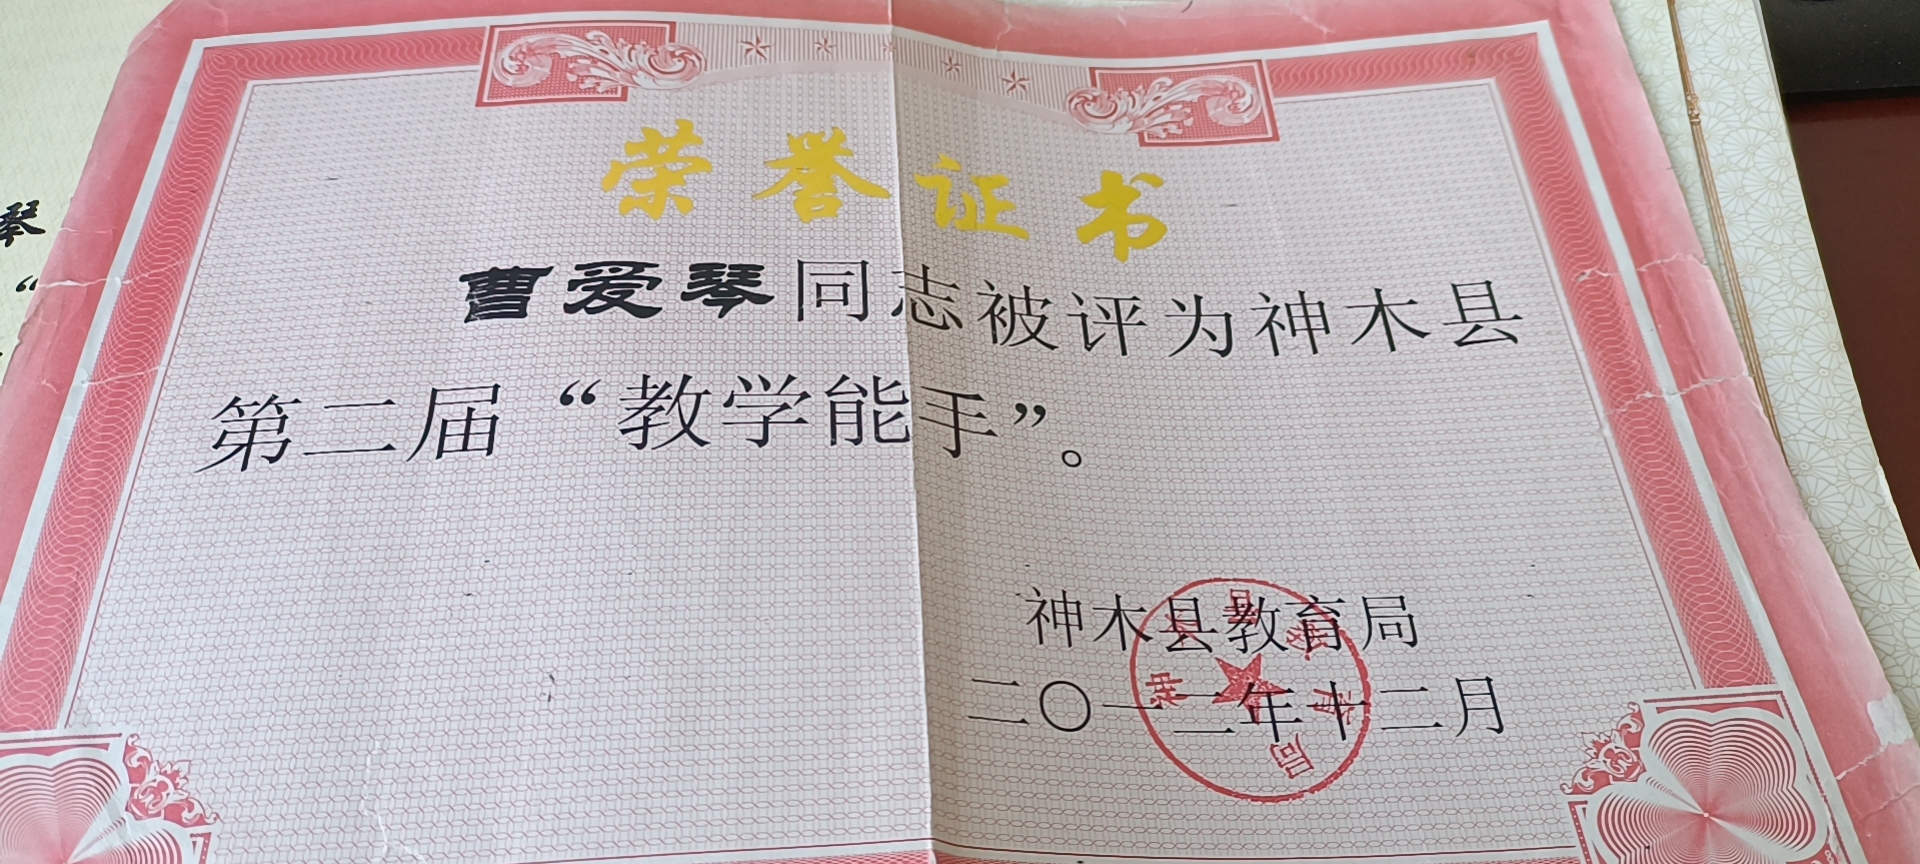 荣誉证书
曹爱琴同志被评为神木县
第二届“教学能手”。
神木县教育局
二〇一二年十二月
神木县教育局
琴
“